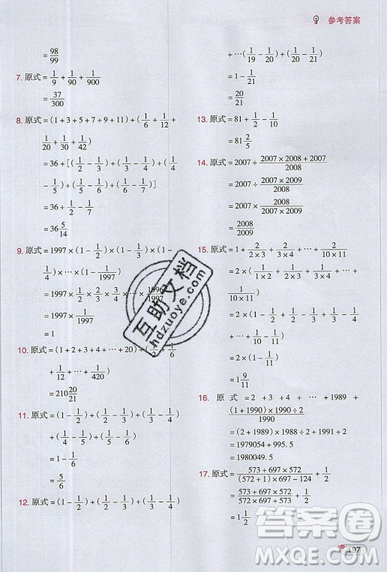 参考答案
= 98/99
7. 原式 = 1/9 + 1/90 + 1/900
= 37/300
8. 原式 = (1+3+5+7+9+11) + (1/6 + 1/12 +
1/20 + 1/30 + 1/42)
= 36 + [(1/2 - 1/3) + (1/3 - 1/4) + (1/4 - 1/5) +
(1/5 - 1/6) + (1/6 - 1/7)]
= 36 + 1/2 - 1/7
= 36 5/14
9. 原式 = 1997 × (1 - 1/2) × (1 - 1/3) × (1 -
1/4) × ⋯ × (1 - 1/1997)
= 1997 × 1/2 ×
= 1997 × 1/1997
= 1
10. 原式 = (1+2+3+4+⋯+20) + (1/2 +
1/12 + ⋯ + 1/420)
= 210 20/21
11. 原式 = (1/2 - 1/3) + (1/3 - 1/4) + (1/4 - 1/5)
+ (1/5 - 1/6) + 1/6 + 1/3
= 1/2 + 1/3
= 5/6
12. 原式 = (1 - 1/2) + (1/2 - 1/3) + (1/3 - 1/4)
+ ⋯ (1/19 - 1/20) + (1/20 - 1/21)
= 1 - 1/21
= 20/21
13. 原式 = 81 + 1/2 - 1/2
= 81 1/2
14. 原式 = 2007 ÷ (2007×2008+2007)/2008
= 2007 ÷ (2007×2009)/2008
= 2008/2009
15. 原式 = 1 + 2/(2×3) + 2/(3×4) + ⋯ +
2/(10×11)
= 2 × (1/2 + 1/(2×3) + 1/(3×4) + ⋯ +
1/(10×11))
= 2 × (1 - 1/2 + 1/2 - 1/3 + 1/3 - 1/4 + ⋯
+ 1/10 - 1/11)
= 2 × (1 - 1/11)
= 1 9/11
16. 原式 = 2 + 3 + 4 + ⋯ + 1989 +
(1+1990)×1990÷2/1990
= (2+1989)×1988÷2+1991÷2
= 1979054+995.5
= 1980049.5
17. 原式 = (573+697×572)/((572+1)×697-124) + 1/2
= (573+697×572)/(572×697+573) + 1/2
= 1 + 1/2
= 1 1/2
197
互助文档
hdzuoye.com
答案圈
MXQE.COM